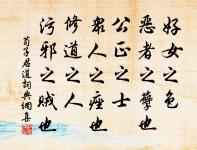 好女之色
惡者之孽也
公正之士
眾人之痤也
修道之人
污邪之賊也
荀子君道詞典網集